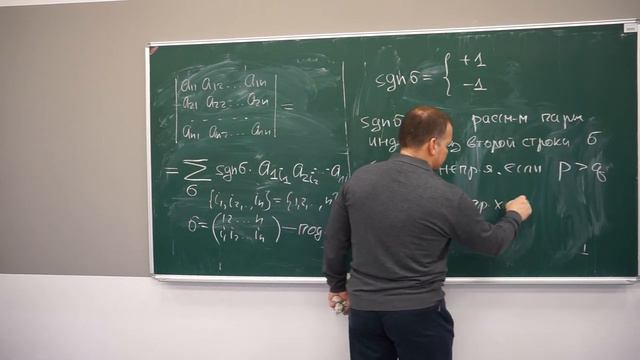 a₁₁ a₁₂ ... a₁ₙ
a₂₁ a₂₂ ... a₂ₙ =
... ... ...
aₙ₁ aₙ₂ ... aₙₙ
= ∑ sgnσ · a₁ᵢ₁ a₂ᵢ₂ ... a
σ
{i₁, i₂, ... iₙ} = {1, 2, ... n
σ = (1 2 ... n
i₁ i₂ ... iₙ) — под
sgnσ = { +1
-1
sgnσ рассм-м пары
инд второй строки σ
если p > q
1